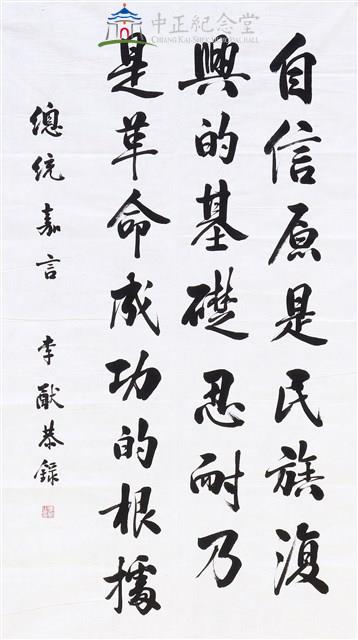 中正紀念堂
CHIANG KAI-SHEK MEMORIAL HALL
自信原是民族復
興的基礎忍耐乃
是革命成功的根據
總統嘉言 李猷恭錄